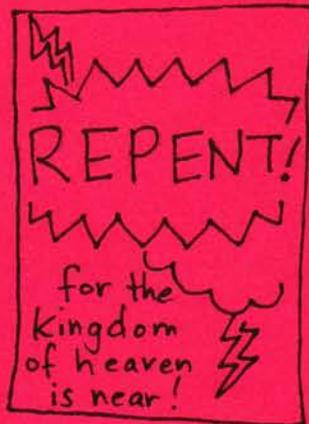 REPENT!
for the
kingdom
of heaven
is near!